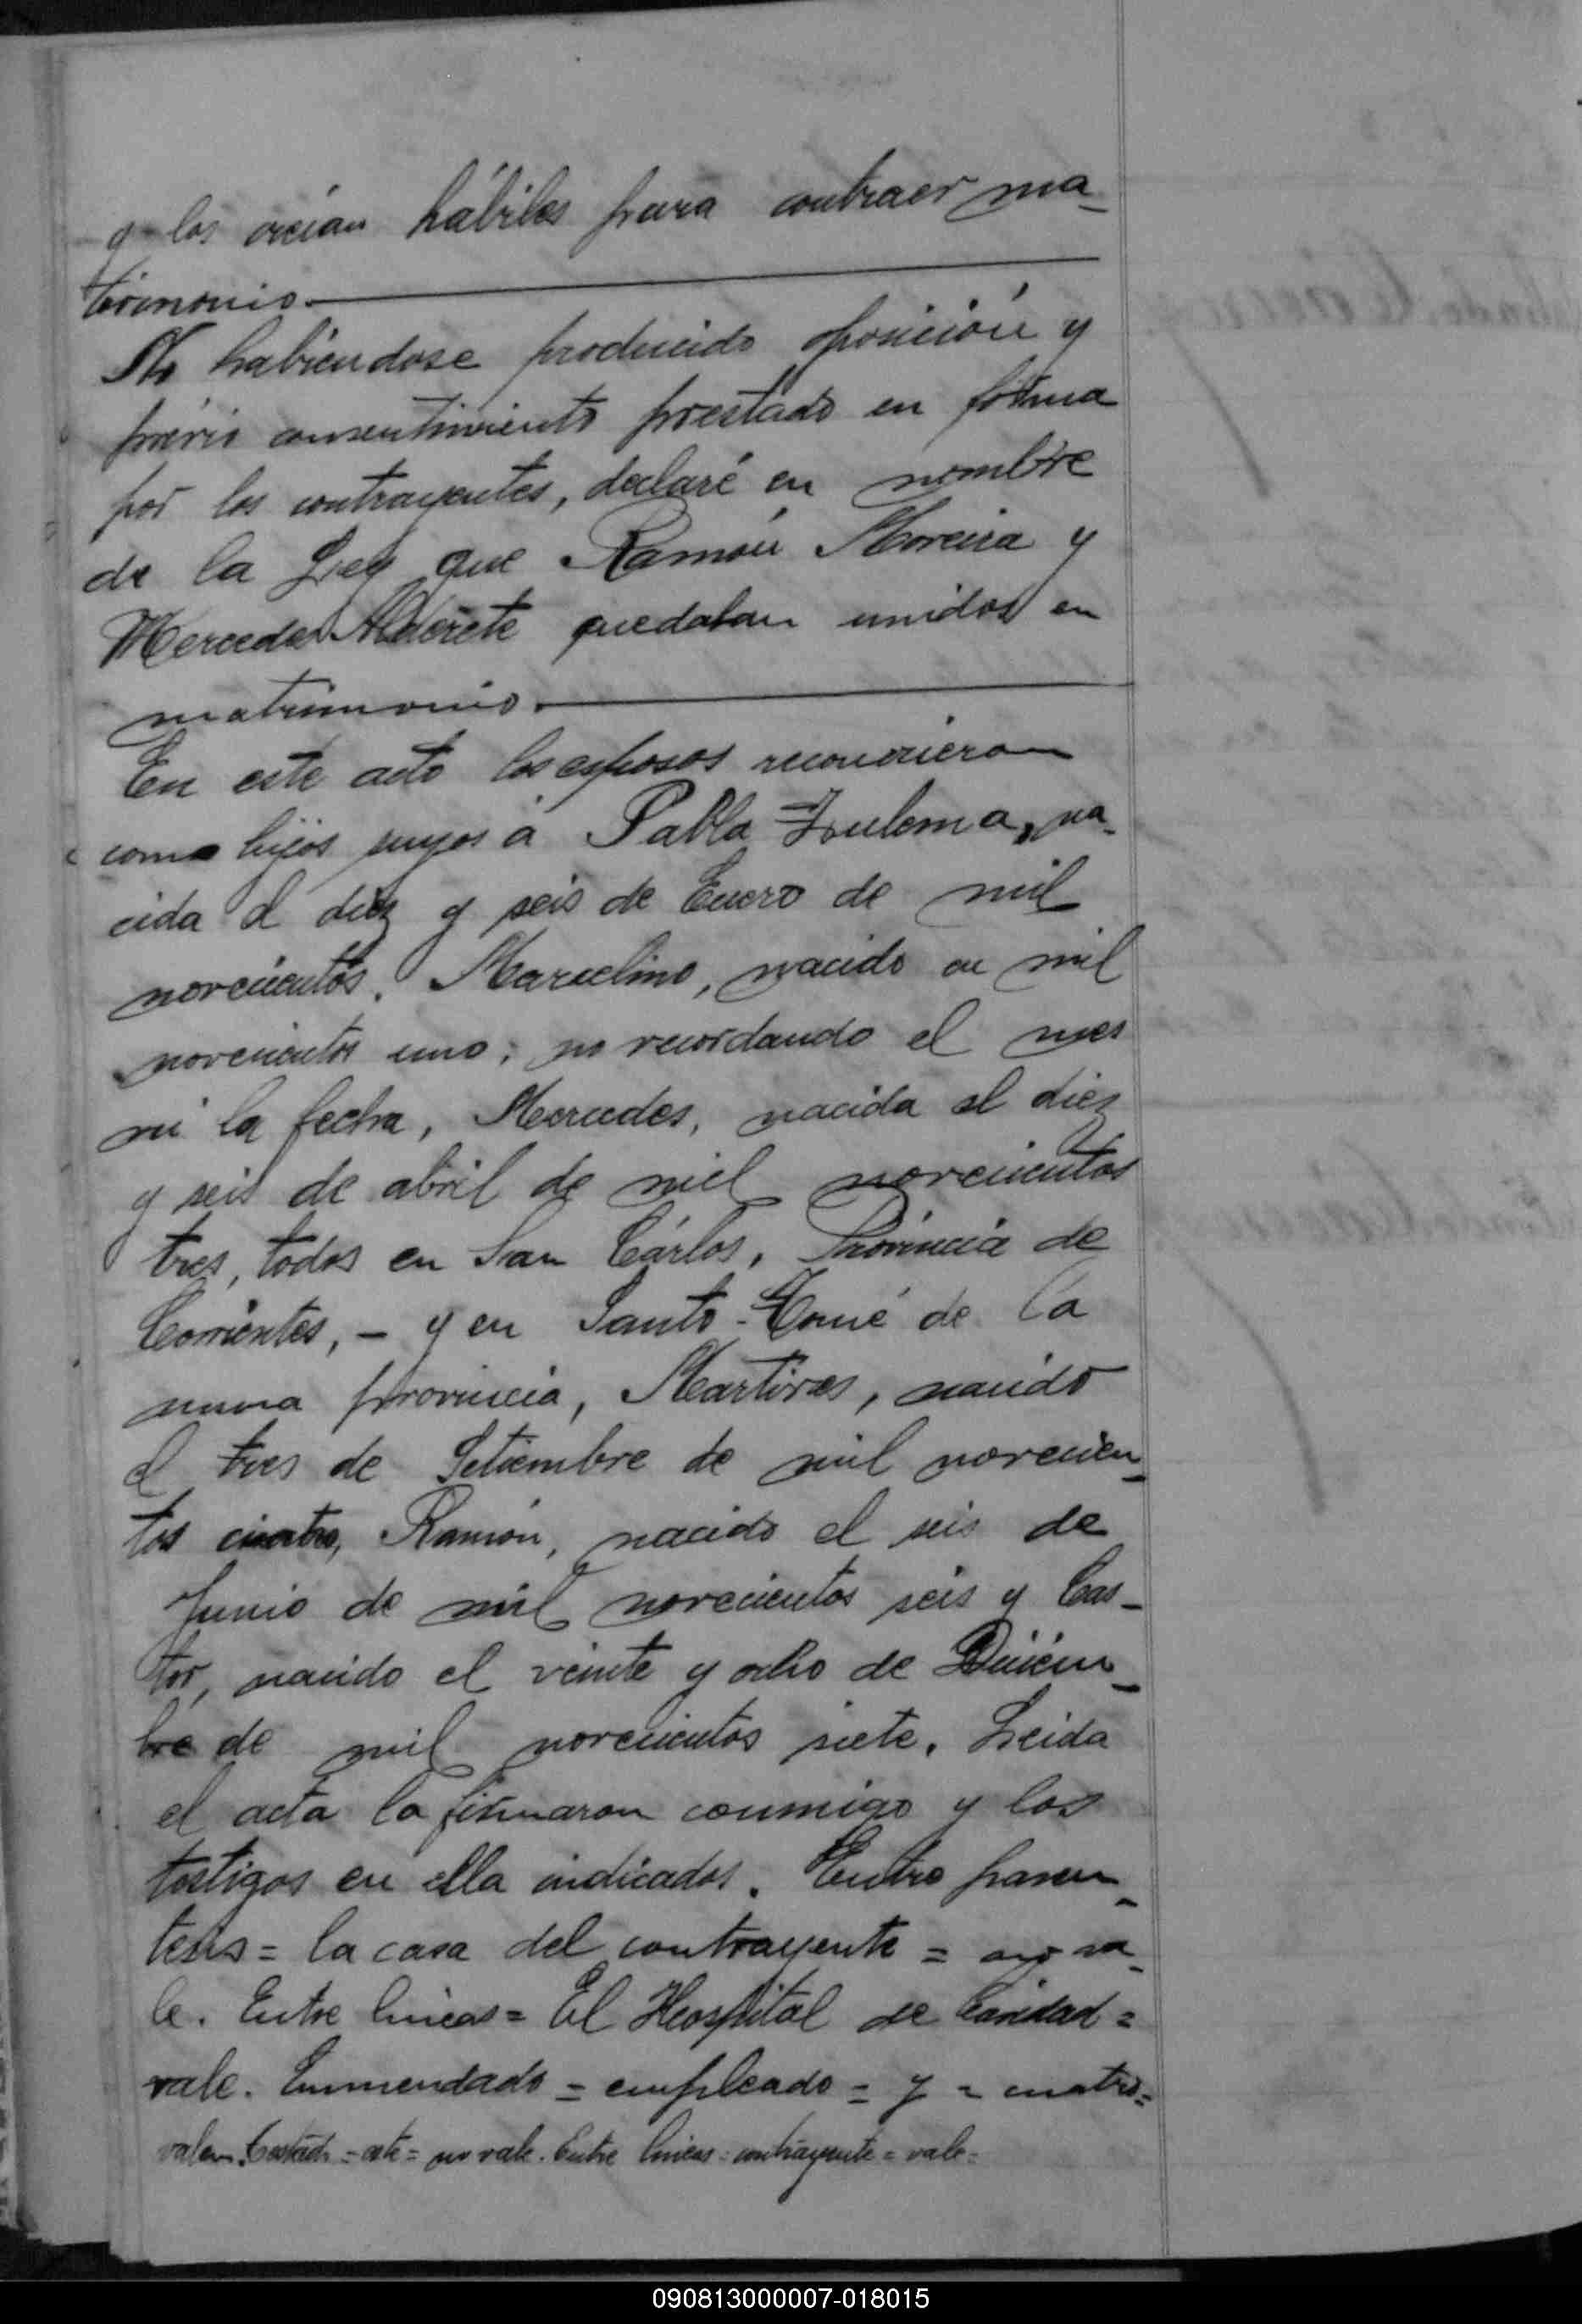 y los creían hábiles para contraer ma-
trimonio.
No habiéndose producido oposición y
prévio consentimiento prestado en forma
por los contrayentes, declaré en nombre
de la Ley que Ramón Moreira y
Mercedes Alderete quedaban unidos en
matrimonio.
En este acto los esposos reconocieron
como hijos suyos á Pabla Zulema, na-
cida el diez y seis de Enero de mil
novecientos, Marcelino, nacido en mil
novecientos uno, no recordando el mes
ni la fecha, Mercedes, nacida el diez
y seis de abril de mil novecientos
tres, todos en San Cárlos, Provincia de
Corrientes, - y en Santo-Tomé de la
misma provincia, Martires, nacido
el tres de Setiembre de mil novecien-
tos cuatro, Ramón, nacido el seis de
Junio de mil novecientos seis y Cas-
tor, nacido el veinte y ocho de Diciem-
bre de mil novecientos siete. Leida
el acta la firmaron conmigo y los
testigos en ella indicados. Entre paren-
tesis = la casa del contrayente = no va-
le. Entre lineas = El Hospital de Caridad =
vale. Enmendado = empleado = y = cuatro =
valen. Testado = = no vale. Entre lineas = contrayente = vale =
090813000007-018015